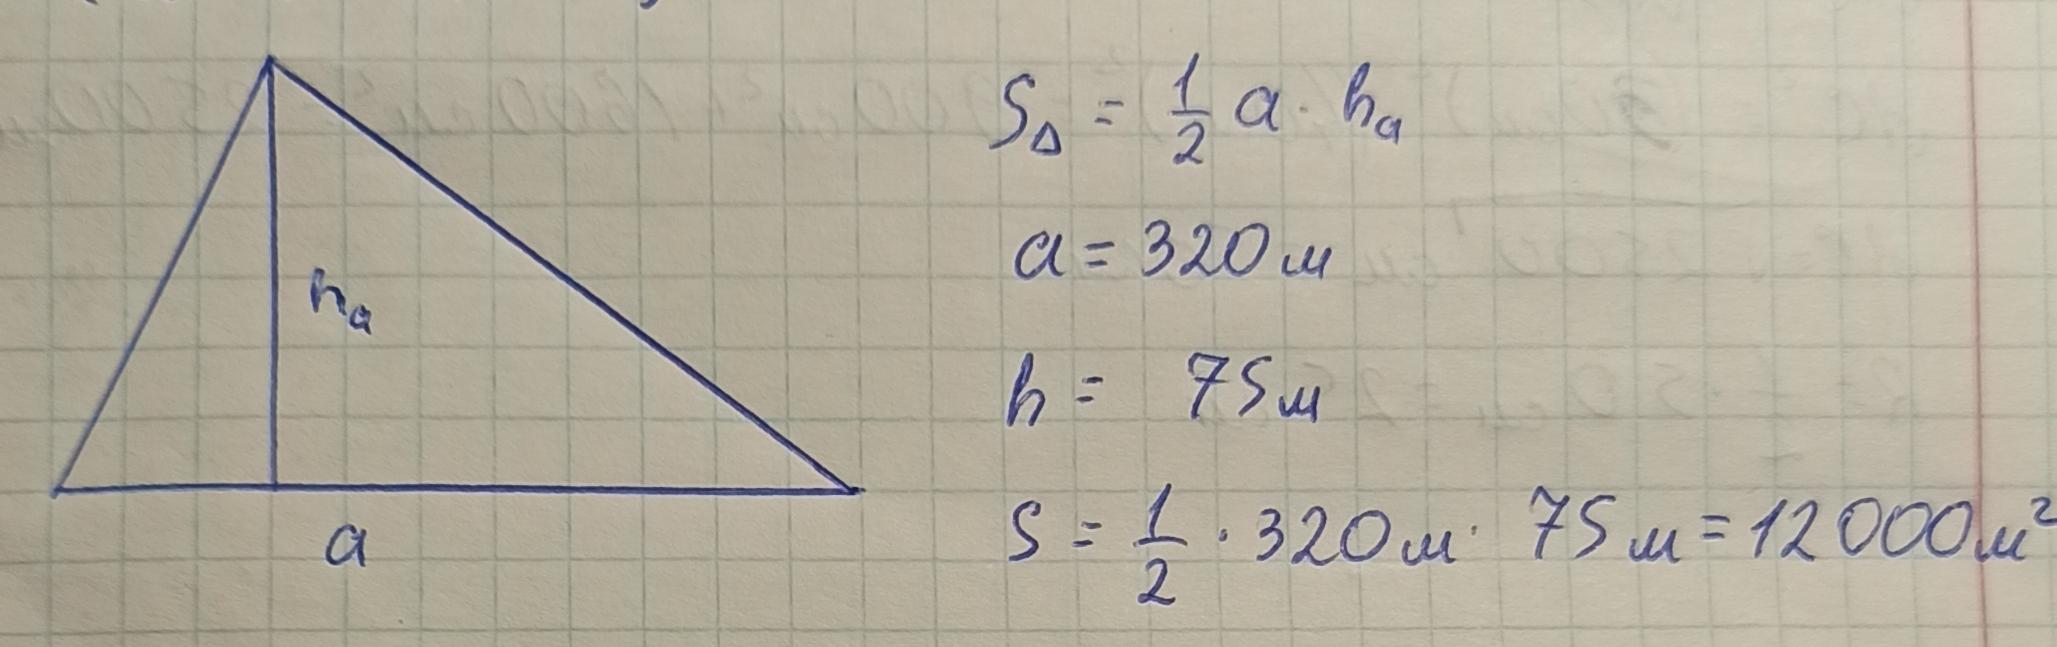 S∆ = 1/2 a · hₐ
a = 320 м
hₐ
h = 75 м
S = 1/2 · 320 м · 75 м = 12 000 м²
a